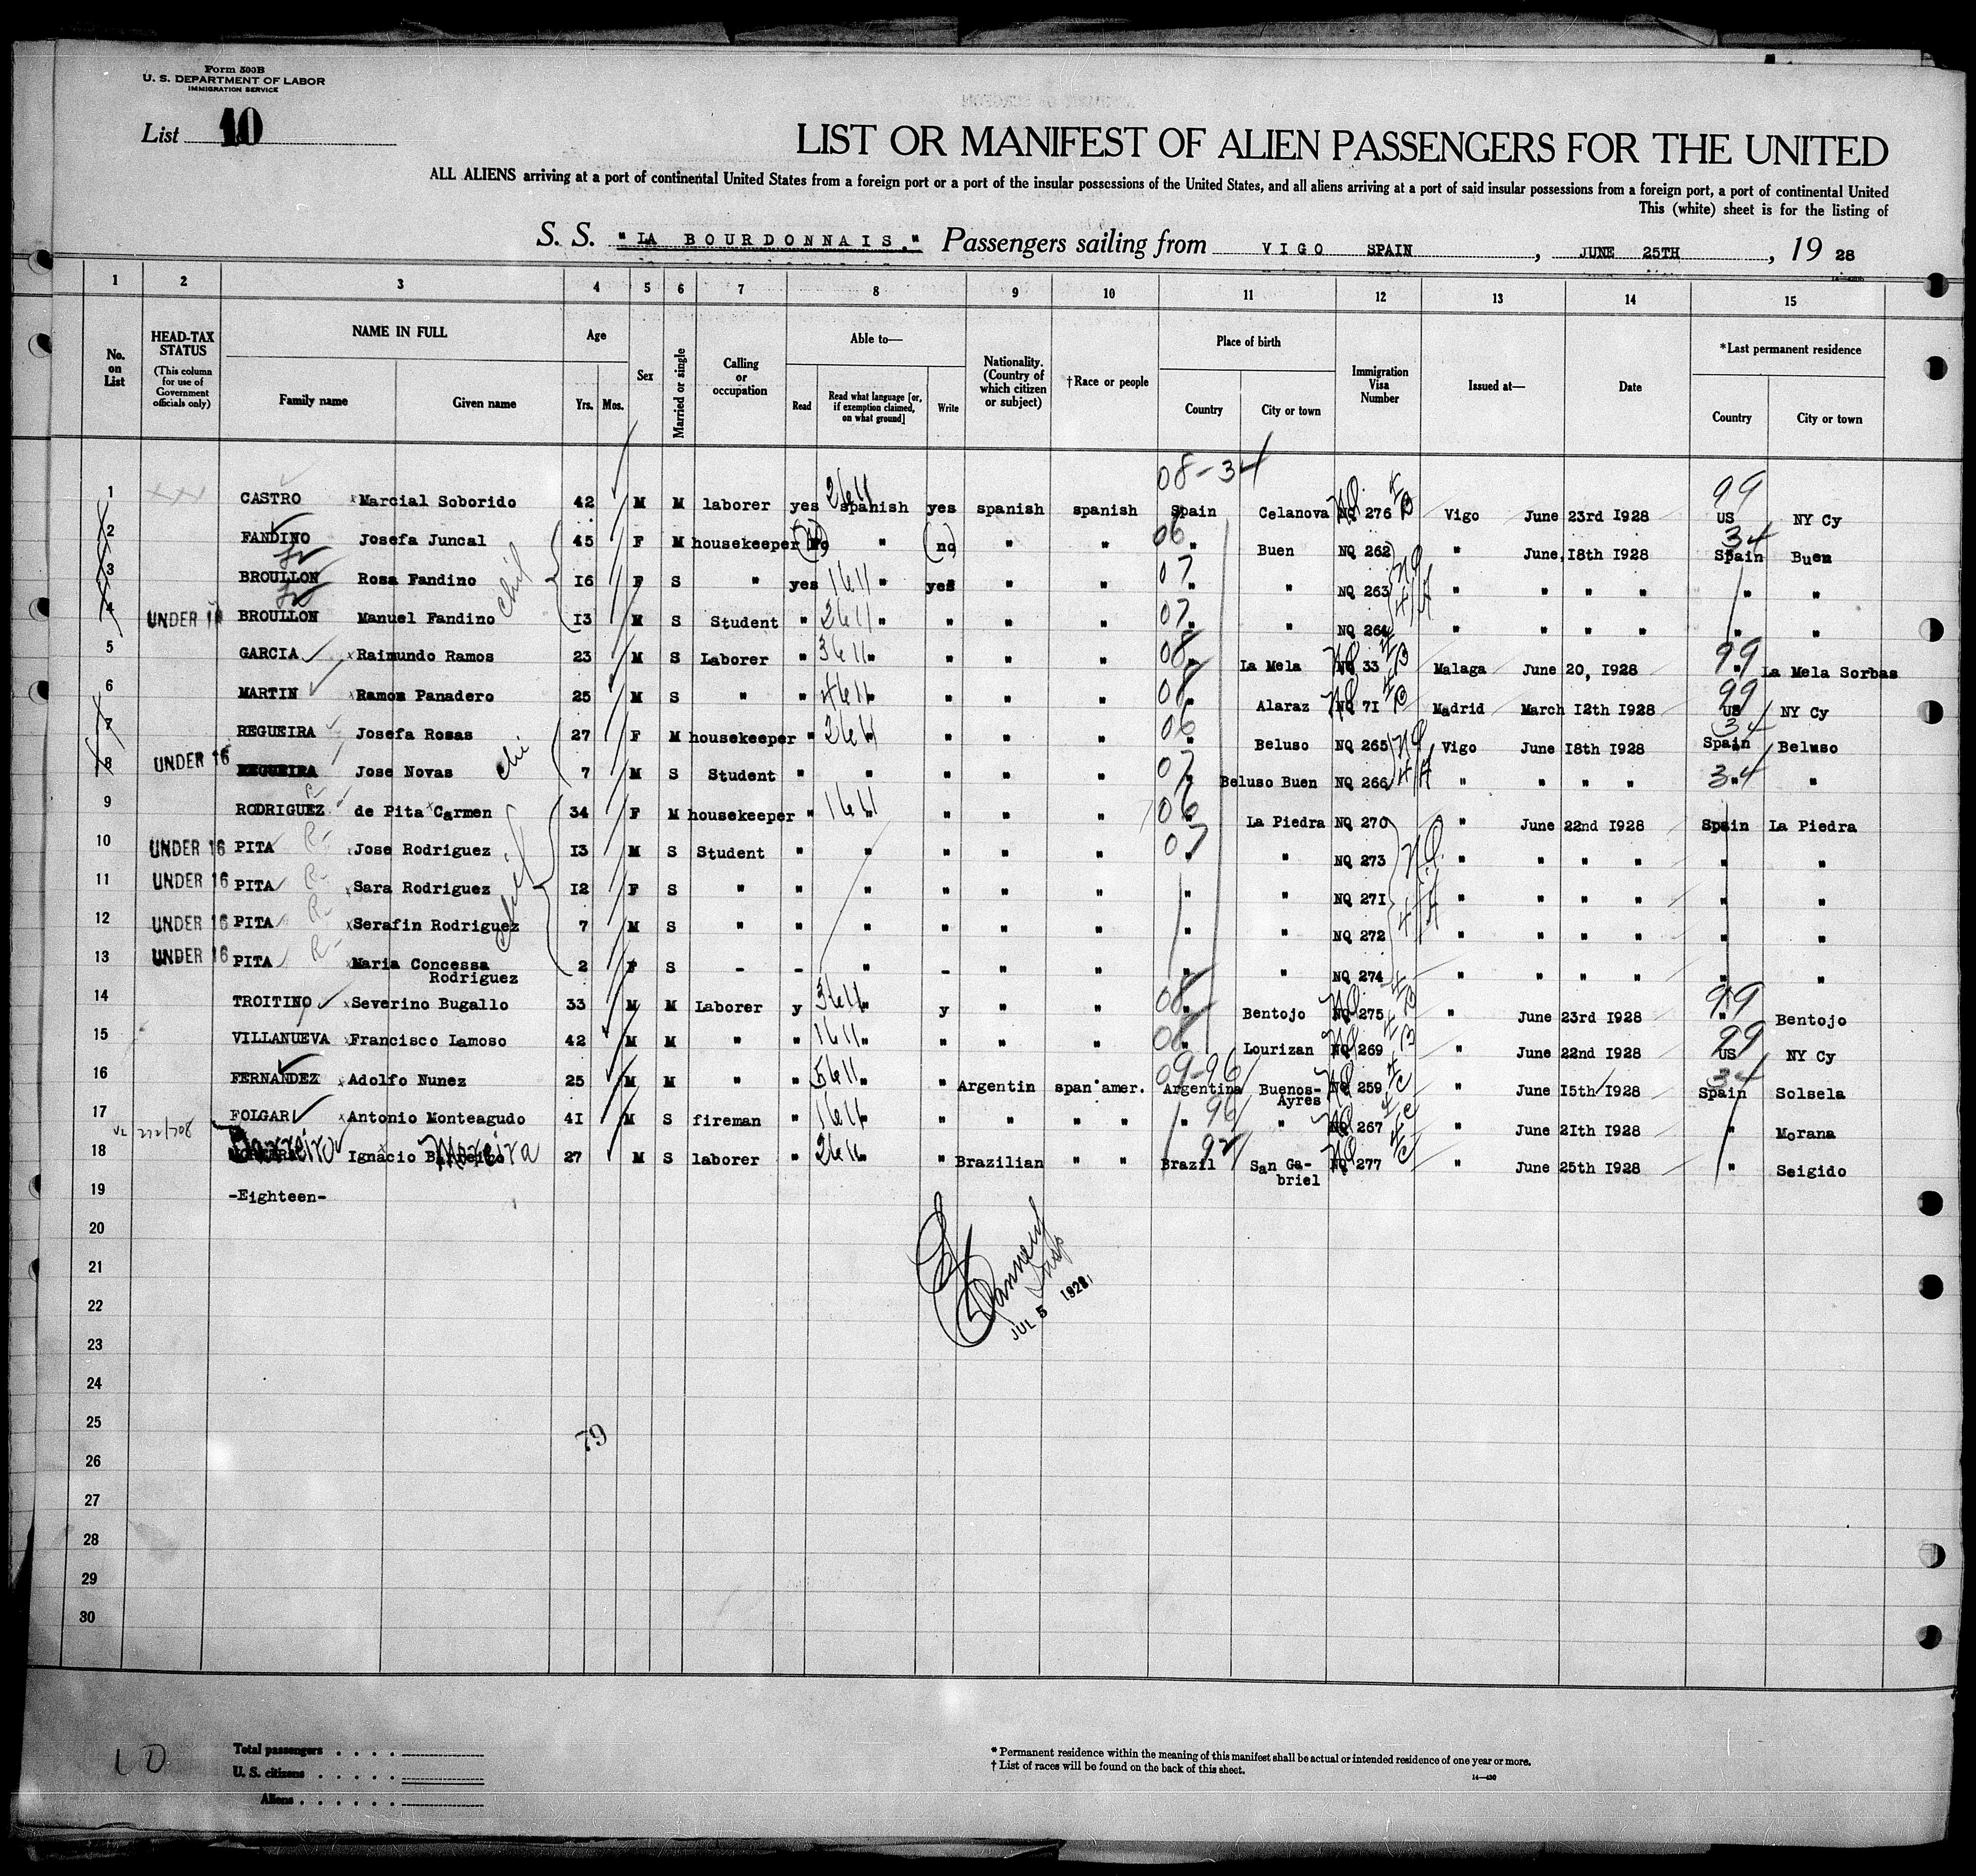 Form 500B
U. S. DEPARTMENT OF LABOR
IMMIGRATION SERVICE
List 10
LIST OR MANIFEST OF ALIEN PASSENGERS FOR THE UNITED
ALL ALIENS arriving at a port of continental United States from a foreign port or a port of the insular possessions of the United States, and all aliens arriving at a port of said insular possessions from a foreign port, a port of continental United
This (white) sheet is for the listing of
S. S. "LA BOURDONNAIS." Passengers sailing from VIGO SPAIN, JUNE 25TH, 19 28
1 2 3 4 5 6 7 8 9 10 11 12 13 14 15
No. on List
HEAD-TAX STATUS
(This column for use of Government officials only)
NAME IN FULL
Family name Given name
Age
Yrs. Mos.
Sex
Married or single
Calling or occupation
Able to—
Read
Read what language [or, if exemption claimed, on what ground]
Write
Nationality. (Country of which citizen or subject)
†Race or people
Place of birth
Country City or town
Immigration Visa Number
Issued at—
Date
*Last permanent residence
Country City or town
08-34
1 CASTRO Marcial Soborido 42 M M laborer yes spanish yes spanish spanish Spain Celanova NQ 276 Vigo June 23rd 1928 99 US NY Cy
2 FANDINO Josefa Juncal 45 F M housekeeper No " no " " 06 " Buen NQ 262 " June, 18th 1928 34 Spain Buen
3 BROULLON Rosa Fandino 16 F S " yes " yes " " 07 " " NQ 263 " " " " " "
4 UNDER 16 BROULLON Manuel Fandino 13 M S Student " " " " " 07 " " NQ 264 " " " " " "
5 GARCIA Raimundo Ramos 23 M S Laborer " " " " " 08 " La Mela NQ 33 Malaga June 20, 1928 99 " La Mela Sorbas
6 MARTIN Ramon Panadero 25 M S " " " " " " 08 " Alaraz NQ 71 Madrid March 12th 1928 99 US NY Cy
7 REGUEIRA Josefa Rosas 27 F M housekeeper " " " " " 06 " Beluso NQ 265 Vigo June 18th 1928 34 Spain Beluso
8 UNDER 16 REGUEIRA Jose Novas 7 M S Student " " " " " 07 " Beluso Buen NQ 266 " " " " 34 " "
9 RODRIGUEZ de Pita Carmen 34 F M housekeeper " " " " " 06 " La Piedra NQ 270 " June 22nd 1928 Spain La Piedra
10 UNDER 16 PITA Jose Rodriguez 13 M S Student " " " " " 07 " " NQ 273 " " " " " "
11 UNDER 16 PITA Sara Rodriguez 12 F S " " " " " " " " NQ 271 " " " " " "
12 UNDER 16 PITA Serafin Rodriguez 7 M S " " " " " " " " NQ 272 " " " " " "
13 UNDER 16 PITA Maria Concessa 2 F S - - " - " " " " NQ 274 " " " " " "
Rodriguez
14 TROITINO Severino Bugallo 33 M M Laborer y " y " " 08 " Bentojo NQ 275 " June 23rd 1928 99 " Bentojo
15 VILLANUEVA Francisco Lamoso 42 M M " " " " " " 08 " Lourizan NQ 269 " June 22nd 1928 99 US NY Cy
16 FERNANDEZ Adolfo Nunez 25 M M " " " " Argentin span amer. 09-96 Argentina Buenos- NQ 259 " June 15th 1928 34 Spain Solsela
Ayres
17 FOLGAR Antonio Monteagudo 41 M S fireman " " " " " " 96 " " NQ 267 " June 21th 1928 " Morana
18 Barreiro Ignacio Moreira 27 M S laborer " " " Brazilian " " 92 Brazil San Ga- NQ 277 " June 25th 1928 " Seigido
briel
19 -Eighteen-
20
21
22
23
24
25
26
27
28
29
30
Insp
JUL 5 1928
79
10
Total passengers
U. S. citizens
Aliens
* Permanent residence within the meaning of this manifest shall be actual or intended residence of one year or more.
† List of races will be found on the back of this sheet.
14—430